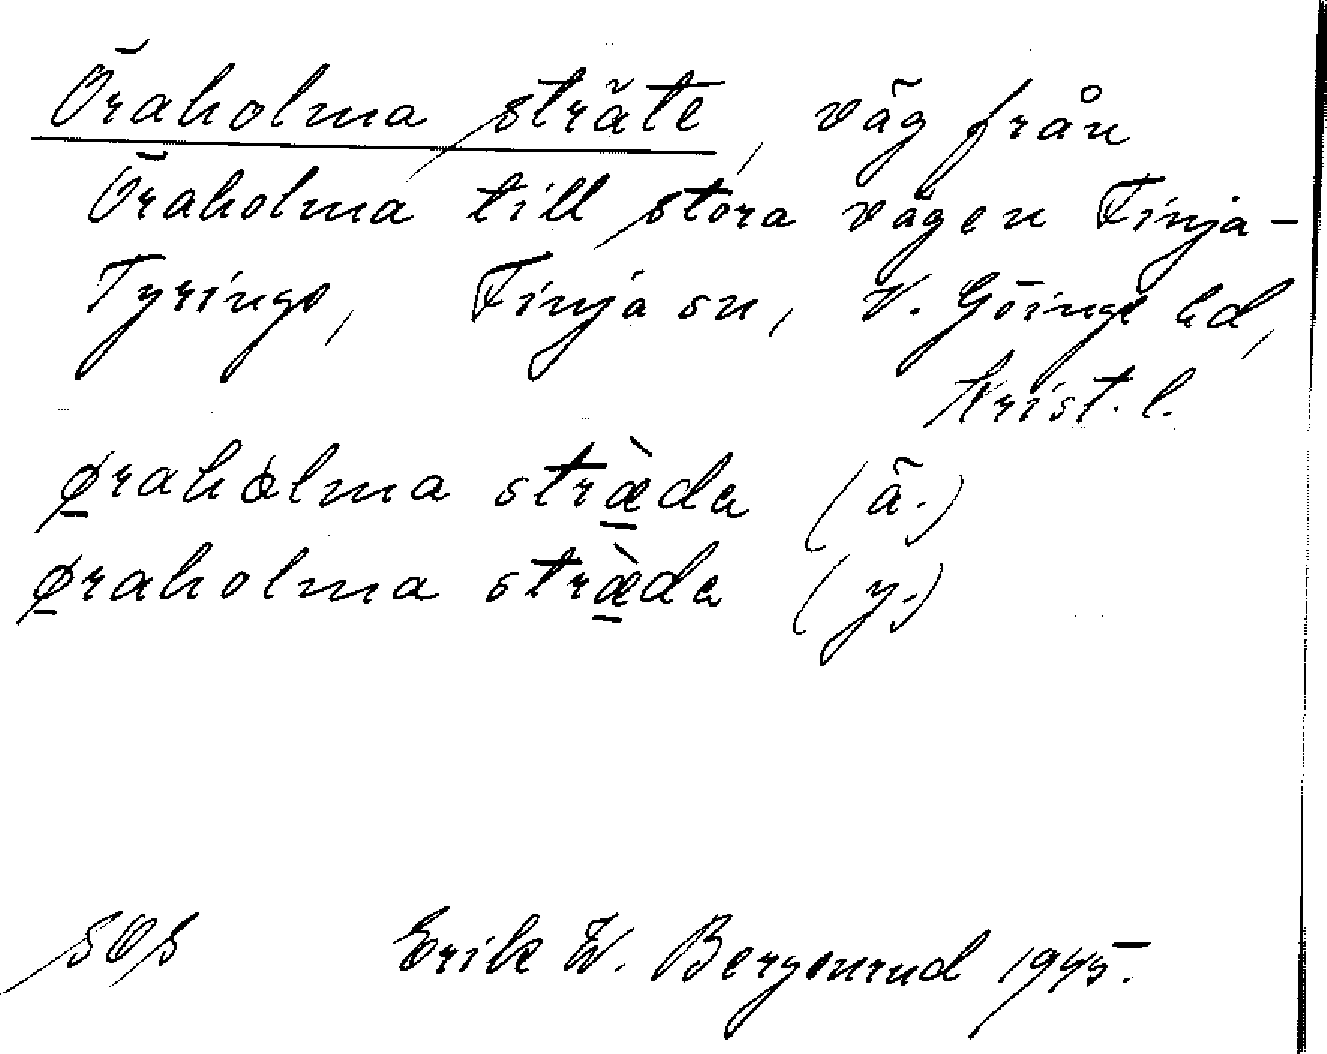 Öraholma sträte, väg från
Öraholma till stora vägen Finja-
Tyringe, Finja sn, V. Göinge hd,
Krist. l.
øraholma stræ̀da (ä.)
øraholma stræ̀da (y.)
SOS Erik W. Bergenrud 1945.